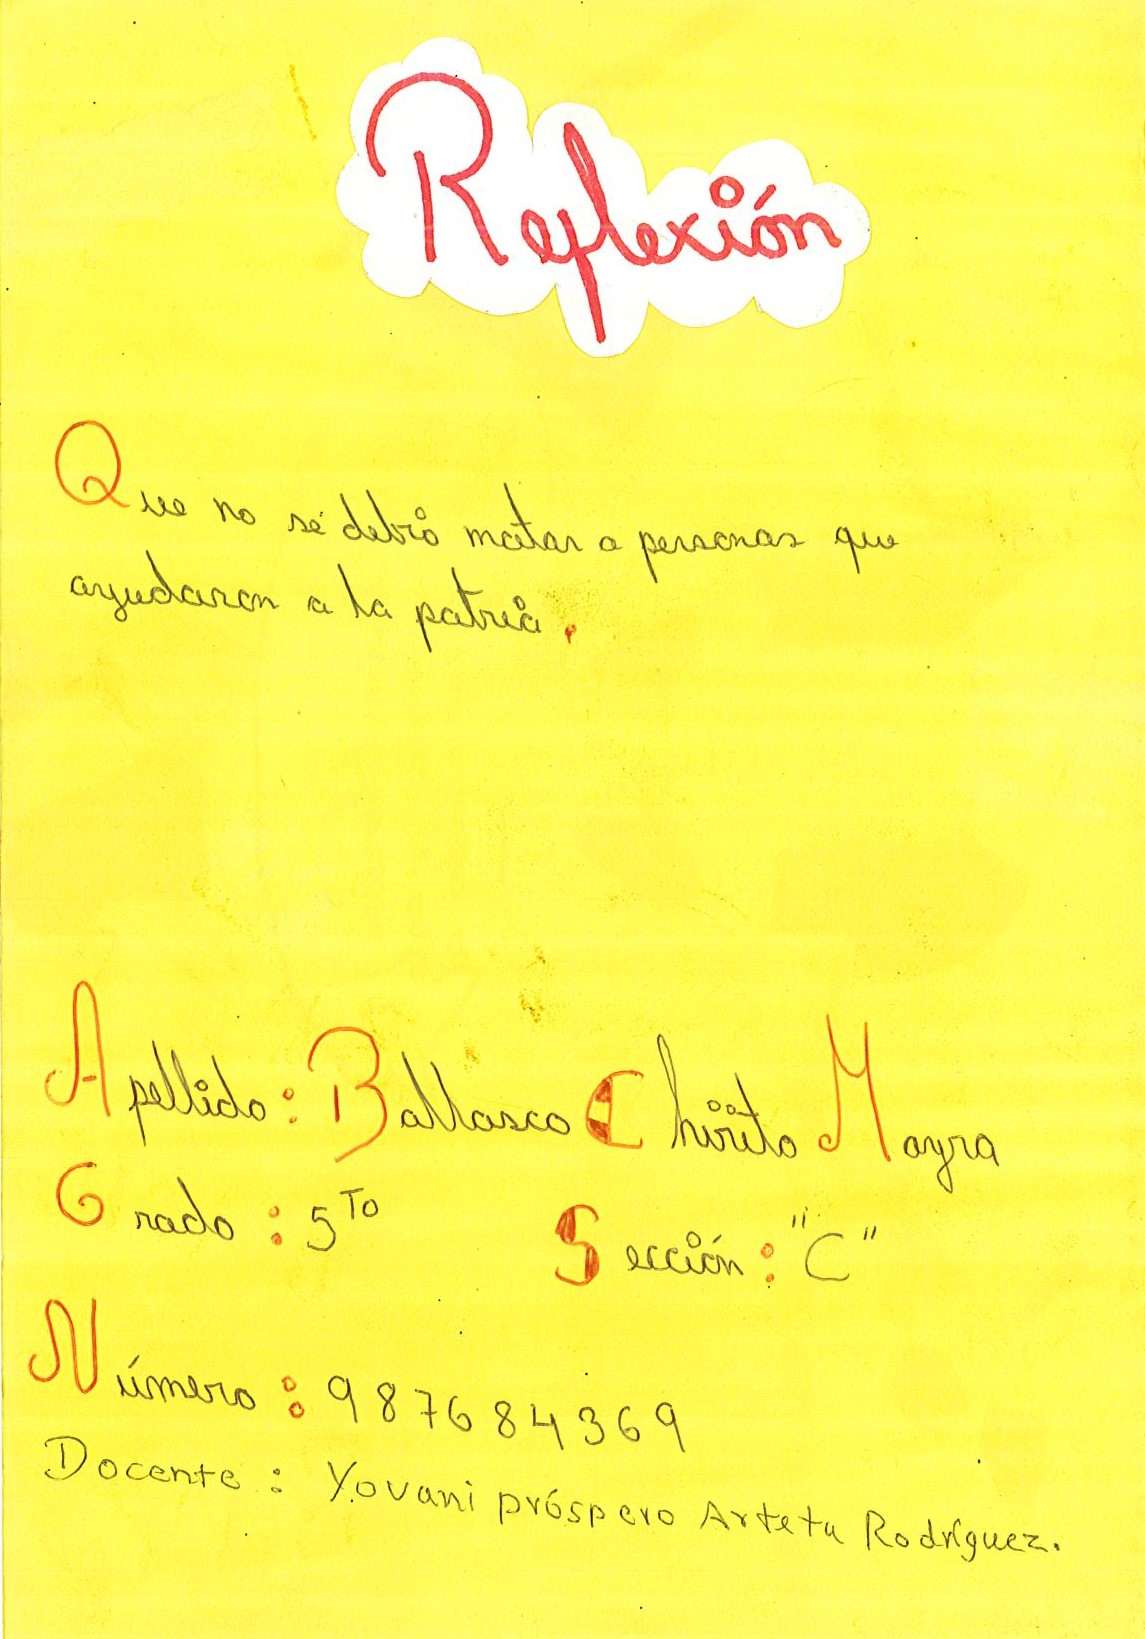 Reflexión
Que no se debió matar a personas que
ayudaron a la patria.
Apellido: Ballasco Chirito Mayra
Grado: 5To Sección: "C"
Número: 987684369
Docente: Yovani próspero Arteta Rodríguez.